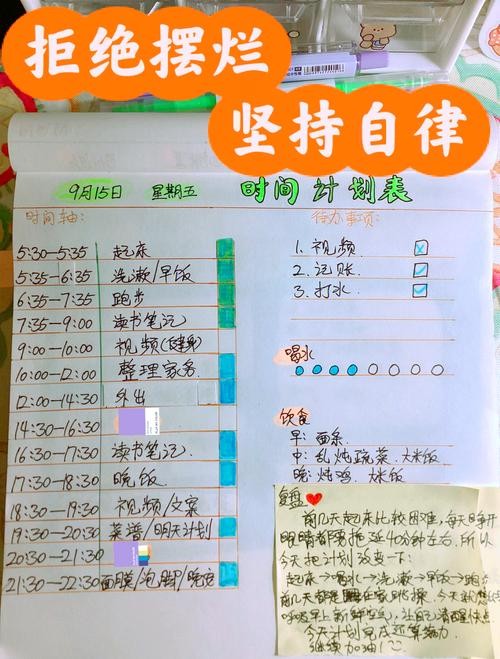 拒绝摆烂
坚持自律
9月15日 星期五 时间计划表
时间轴:
5:30-5:35 起床
5:35-6:35 洗漱/早饭
6:35-7:35 跑步
7:35-9:00 读书笔记
9:00-10:00 视频(健身)
10:00-12:00 整理家务
12:00-14:30 外出
14:30-16:30
16:30-17:30 读书笔记
17:30-18:30 晚饭
18:30-19:30 视频/文案
19:30-20:30 菜谱/明天计划
20:30-21:30
21:30-22:30 面膜/泡脚/晚安
待办事项:
1. 视频
2. 记账
3. 打水
喝水
饮食
早: 面条
中: 乱炖蔬菜. 大米饭
晚: 炖鸡. 大米饭
复盘
前几天起床比较困难,每天睁开
眼睛都要拖延40分钟左右,所以
今天把计划改变一下:
起床→喝水→洗漱→早饭→跑步
前几天都是
呼吸早上新鲜空气,让自己清醒快点
今天计划完成还算给力
继续加油!